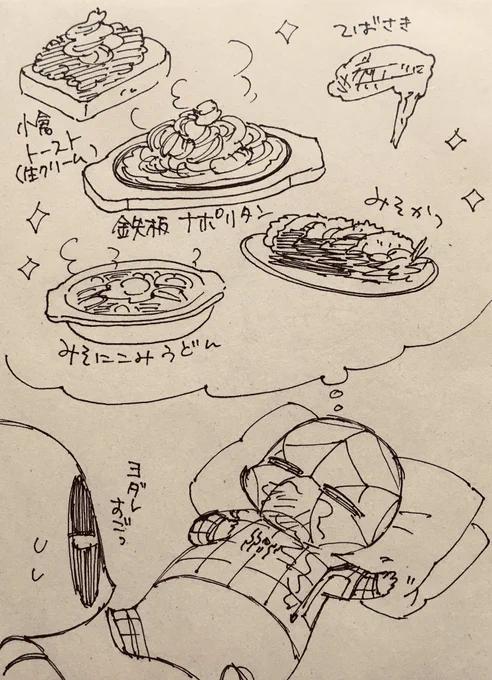 てばさき
小倉
トースト
(生クリーム)
鉄板 ナポリタン
みそかつ
みそにこみうどん
ヨダレ
すごっ